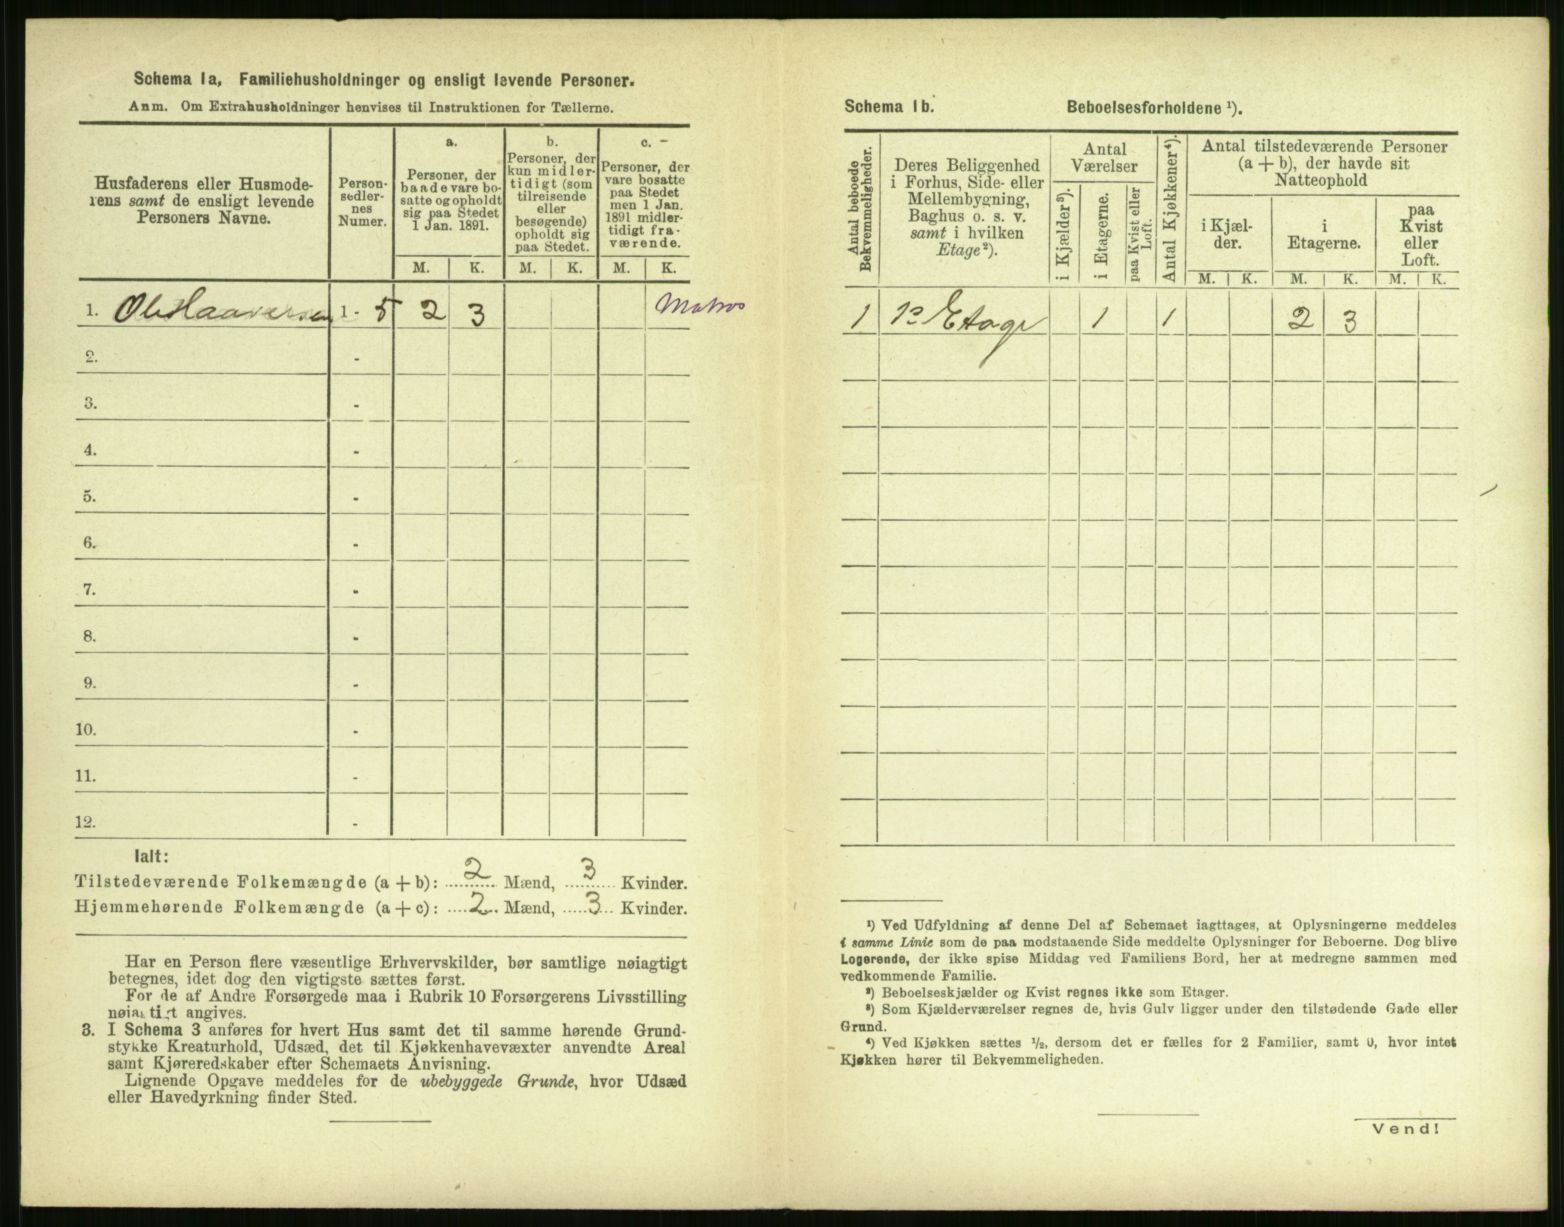 Schema 1a, Familiehusholdninger og ensligt levende Personer.
Anm. Om Extrahusholdninger henvises til Instruktionen for Tællerne.
Husfaderens eller Husmode-
rens samt de ensligt levende
Personers Navne.
Person-
sedler-
nes
Numer.
a.
Personer, der
baade vare bo-
satte og opholdt
sig paa Stedet
1 Jan. 1891.
b.
Personer, der
kun midler-
tidigt (som
tilreisende
eller
besøgende)
opholdt sig
paa Stedet.
c.
Personer, der
vare bosatte
paa Stedet
men 1 Jan.
1891 midler-
tidigt fra-
værende.
M. K. M. K. M. K.
1. Ole Haaversen 1 - 5 2 3 Matros
2. -
3. -
4. -
5. -
6. -
7. -
8. -
9. -
10. -
11. -
12. -
Ialt:
Tilstedeværende Folkemængde (a + b): 2 Mænd, 3 Kvinder.
Hjemmehørende Folkemængde (a + c): 2 Mænd, 3 Kvinder.
Har en Person flere væsentlige Erhvervskilder, bør samtlige nøiagtigt
betegnes, idet dog den vigtigste sættes først.
For de af Andre Forsørgede maa i Rubrik 10 Forsørgerens Livsstilling
nøiagtigt angives.
3. I Schema 3 anføres for hvert Hus samt det til samme hørende Grund-
stykke Kreaturhold, Udsæd, det til Kjøkkenhavevæxter anvendte Areal
samt Kjøreredskaber efter Schemaets Anvisning.
Lignende Opgave meddeles for de ubebyggede Grunde, hvor Udsæd
eller Havedyrkning finder Sted.
Schema 1b. Beboelsesforholdene ¹).
Antal beboede
Bekvemmeligheder.
Deres Beliggenhed
i Forhus, Side- eller
Mellembygning,
Baghus o. s. v.
samt i hvilken
Etage²).
Antal
Værelser
i Kjælder³).
i Etagerne.
paa Kvist eller
Loft.
Antal Kjøkkener⁴).
Antal tilstedeværende Personer
(a + b), der havde sit
Natteophold
i Kjæl-
der.
i
Etagerne.
paa
Kvist
eller
Loft.
M. K. M. K. M. K.
1 1ª Etage 1 1 2 3
¹) Ved Udfyldning af denne Del af Schemaet iagttages, at Oplysningerne meddeles
i samme Linie som de paa modstaaende Side meddelte Oplysninger for Beboerne. Dog blive
Logerende, der ikke spise Middag ved Familiens Bord, her at medregne sammen med
vedkommende Familie.
²) Beboelseskjælder og Kvist regnes ikke som Etager.
³) Som Kjælderværelser regnes de, hvis Gulv ligger under den tilstødende Gade eller
Grund.
⁴) Ved Kjøkken sættes ½, dersom det er fælles for 2 Familier, samt 0, hvor intet
Kjøkken hører til Bekvemmeligheden.
Vend!